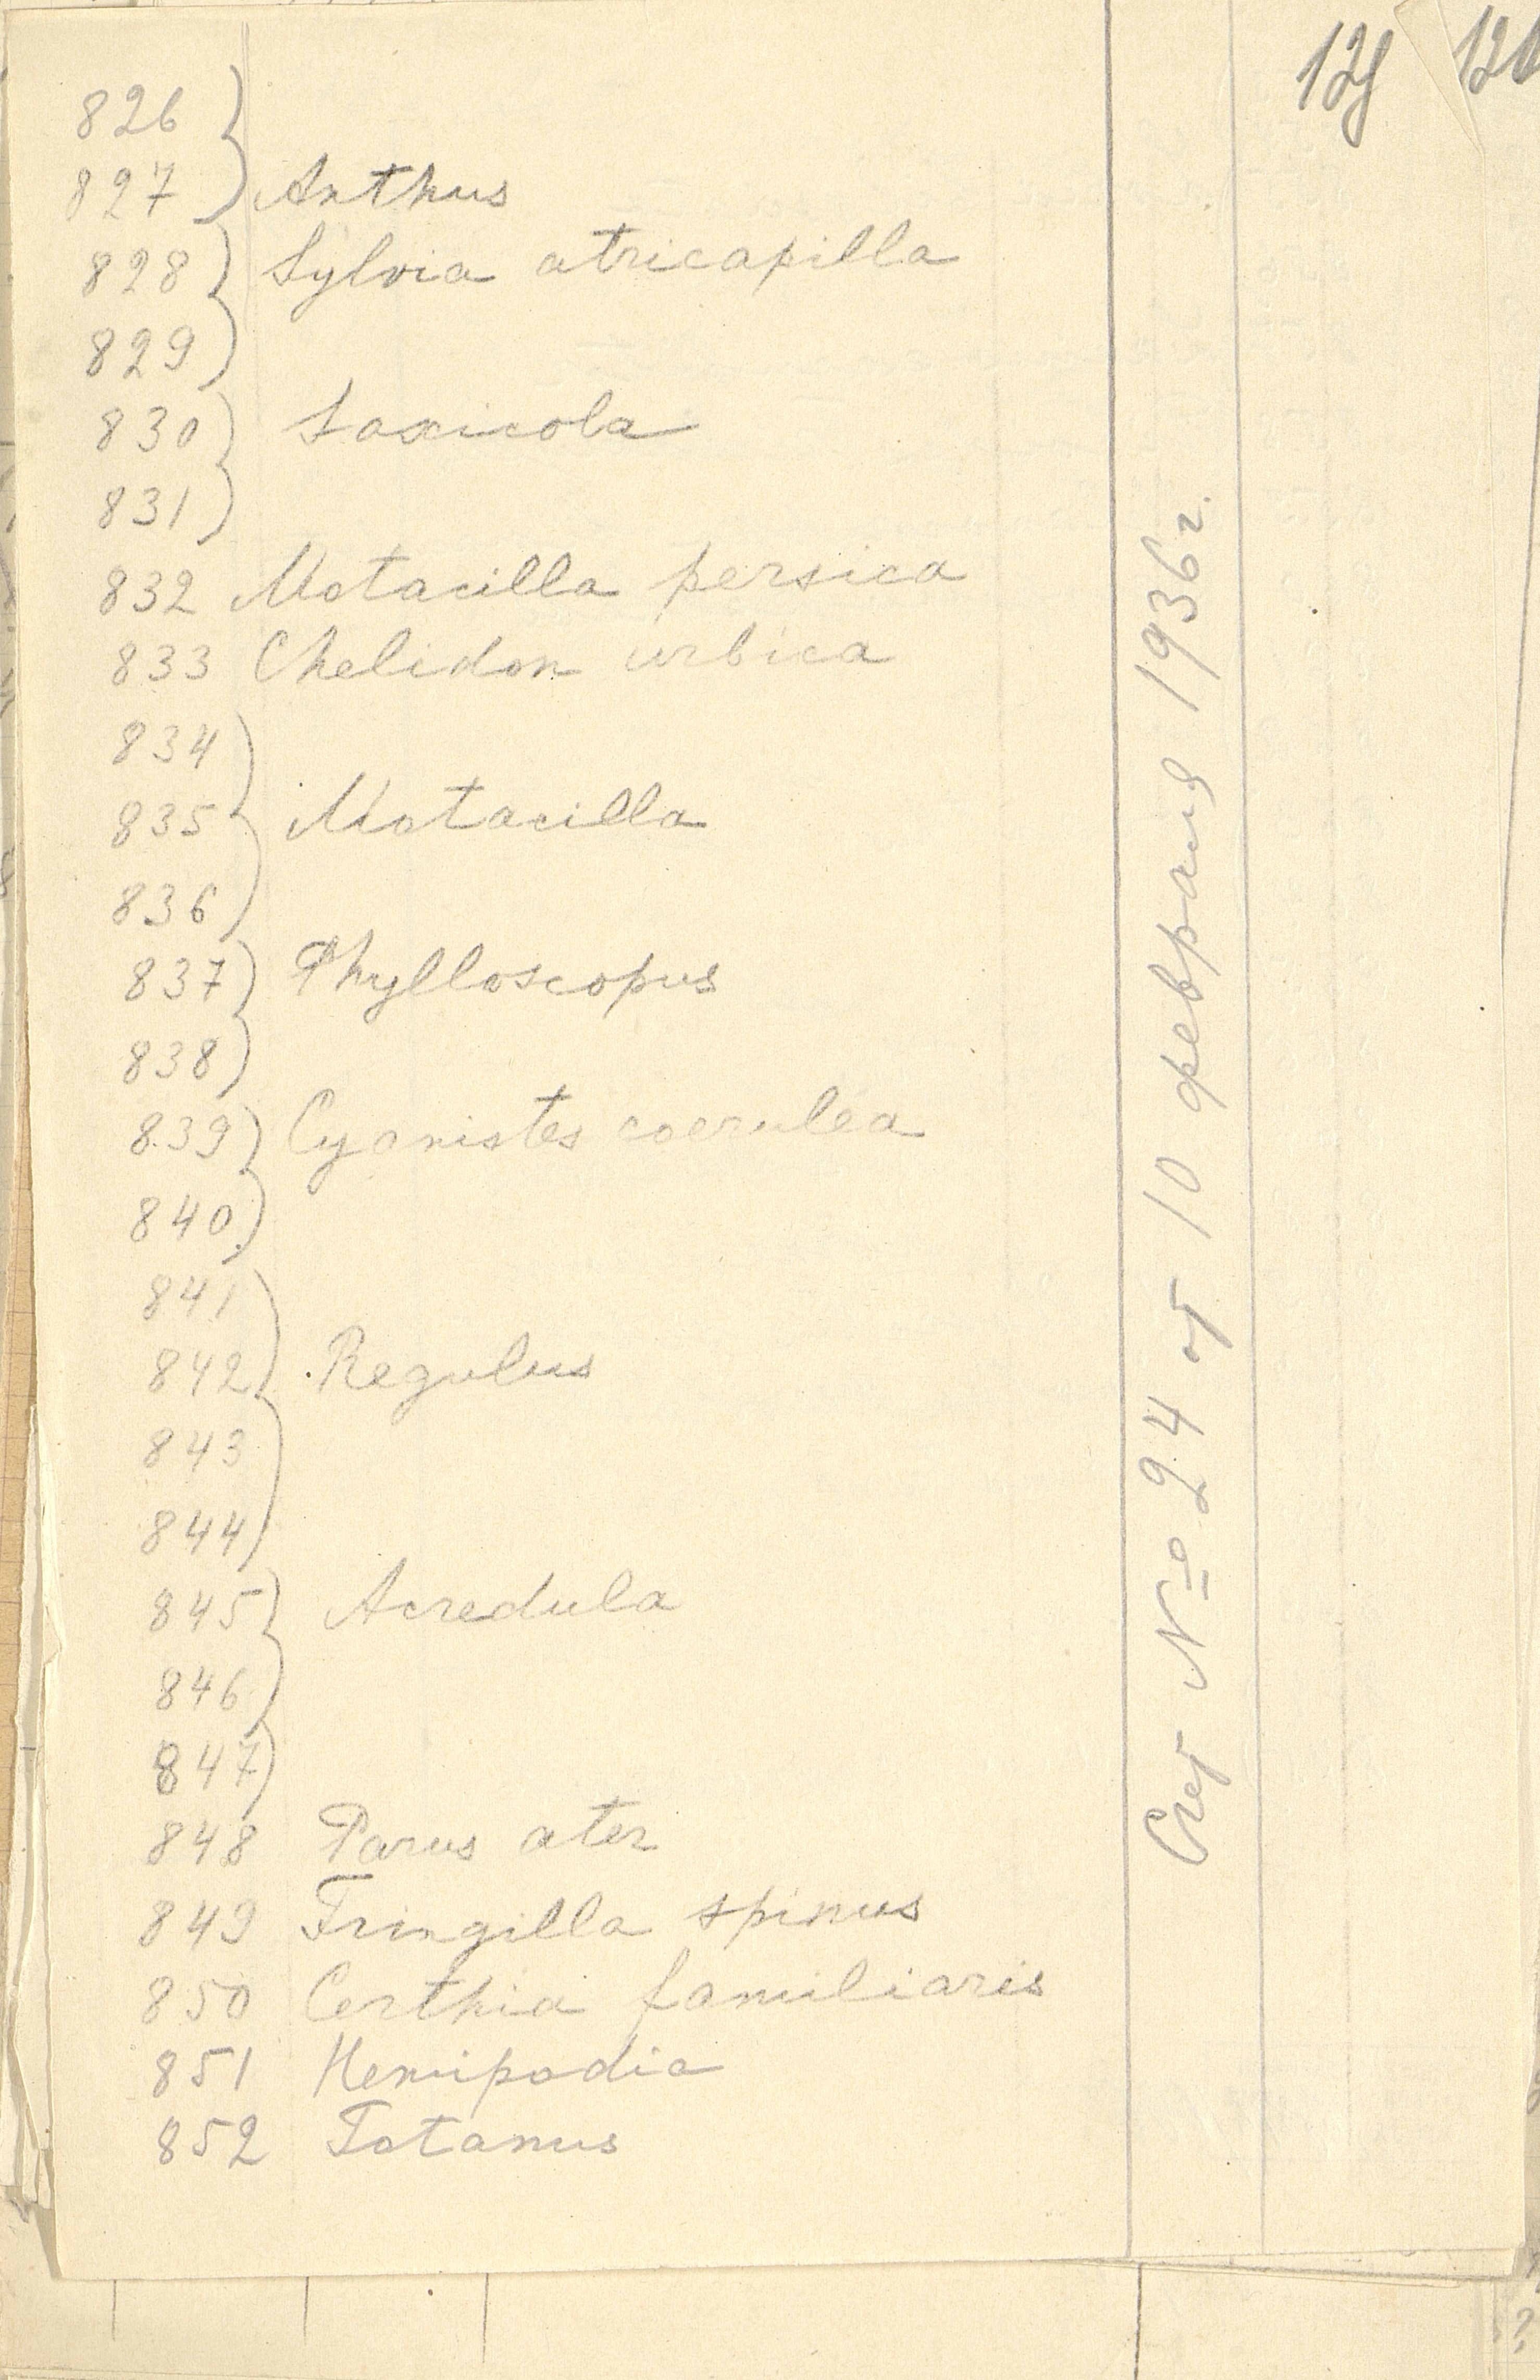 826
827 Anthus
828 Sylvia atricapilla
829
830 Saxicola
831
832 Motacilla persica
833 Chelidon urbica
834
835 Motacilla
836
837 Phylloscopus
838
839 Cyanistes coerulea
840
841
842 Regulus
843
844
845 Acredula
846
847
848 Parus ater
849 Fringilla spinus
850 Certhia familiaris
851 Hemipodia
852 Totanus
Счет № 24 от 10 февраля 1936 г.